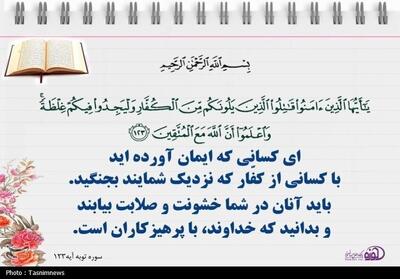 بِسْمِ اللَّهِ الرَّحْمَٰنِ الرَّحِيمِ
يَٰٓأَيُّهَا الَّذِينَ ءَامَنُوا قَٰتِلُوا الَّذِينَ يَلُونَكُم مِّنَ الْكُفَّارِ وَلْيَجِدُوا فِيكُمْ غِلْظَةً ۚ
وَاعْلَمُوٓا أَنَّ اللَّهَ مَعَ الْمُتَّقِينَ ﴿١٢٣﴾
ای کسانی که ایمان آورده اید
با کسانی از کفار که نزدیک شمایند بجنگید.
باید آنان در شما خشونت و صلابت بیابند
و بدانید که خداوند، با پرهیزکاران است.
سوره توبه آیه۱۲۳
Photo : Tasnimnews